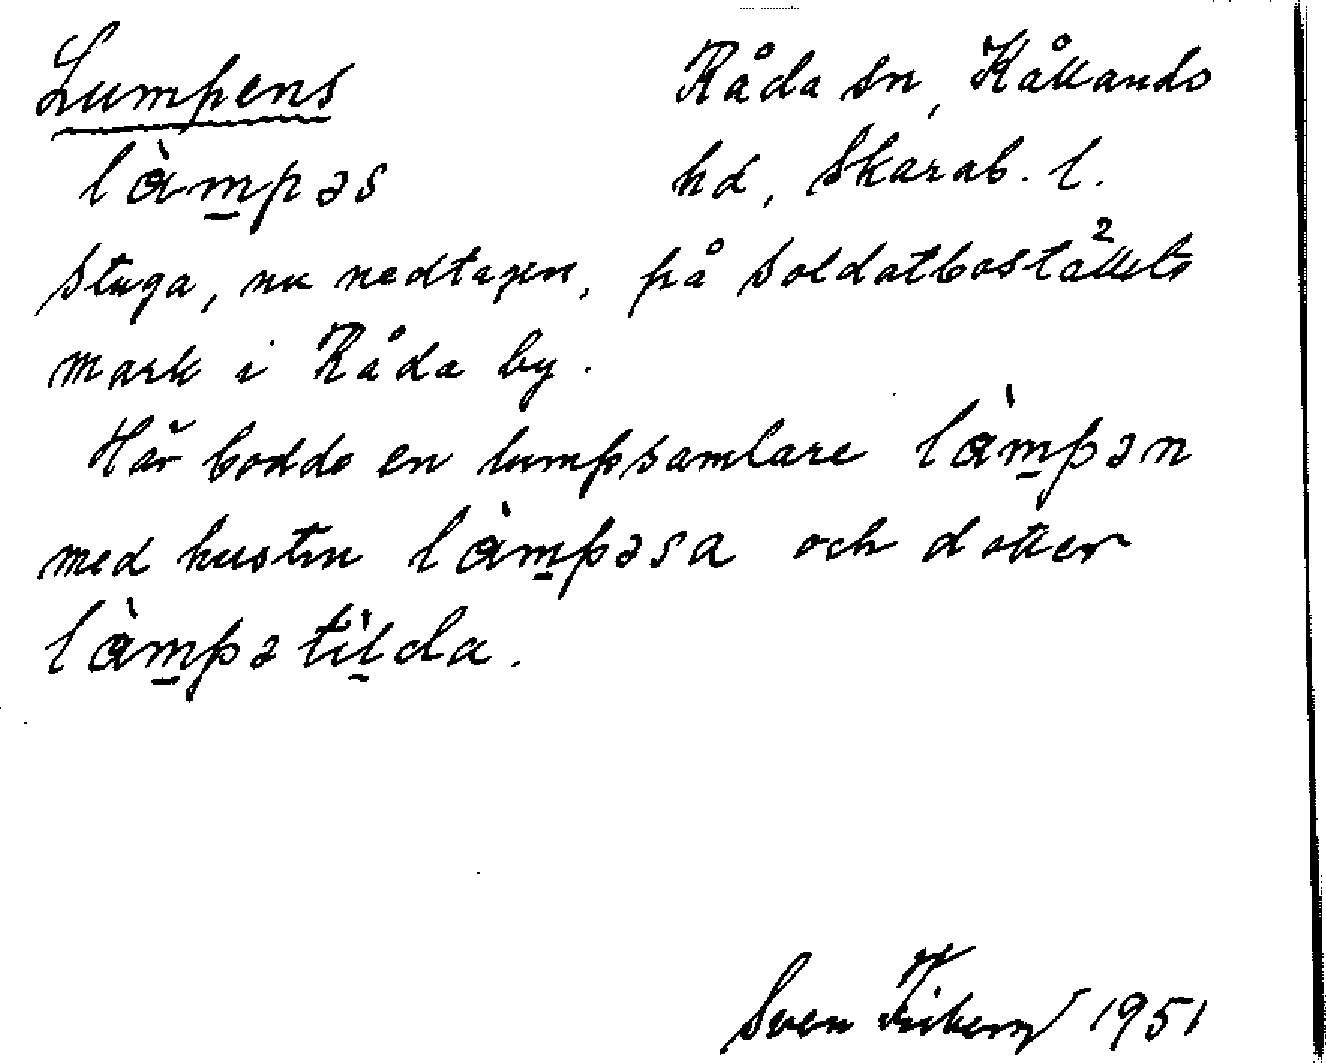 Lumpens
Råda sn, Kållands
là̱mpəs
hd, Skarab. l.
stuga, nu nedtagen, på soldatboställets
2
mark i Råda by.
Här bodde en lumpsamlare làm̱pən
med hustru làm̱pəsa och dotter
làm̱pətìḻda.
Sven Friberg 1951